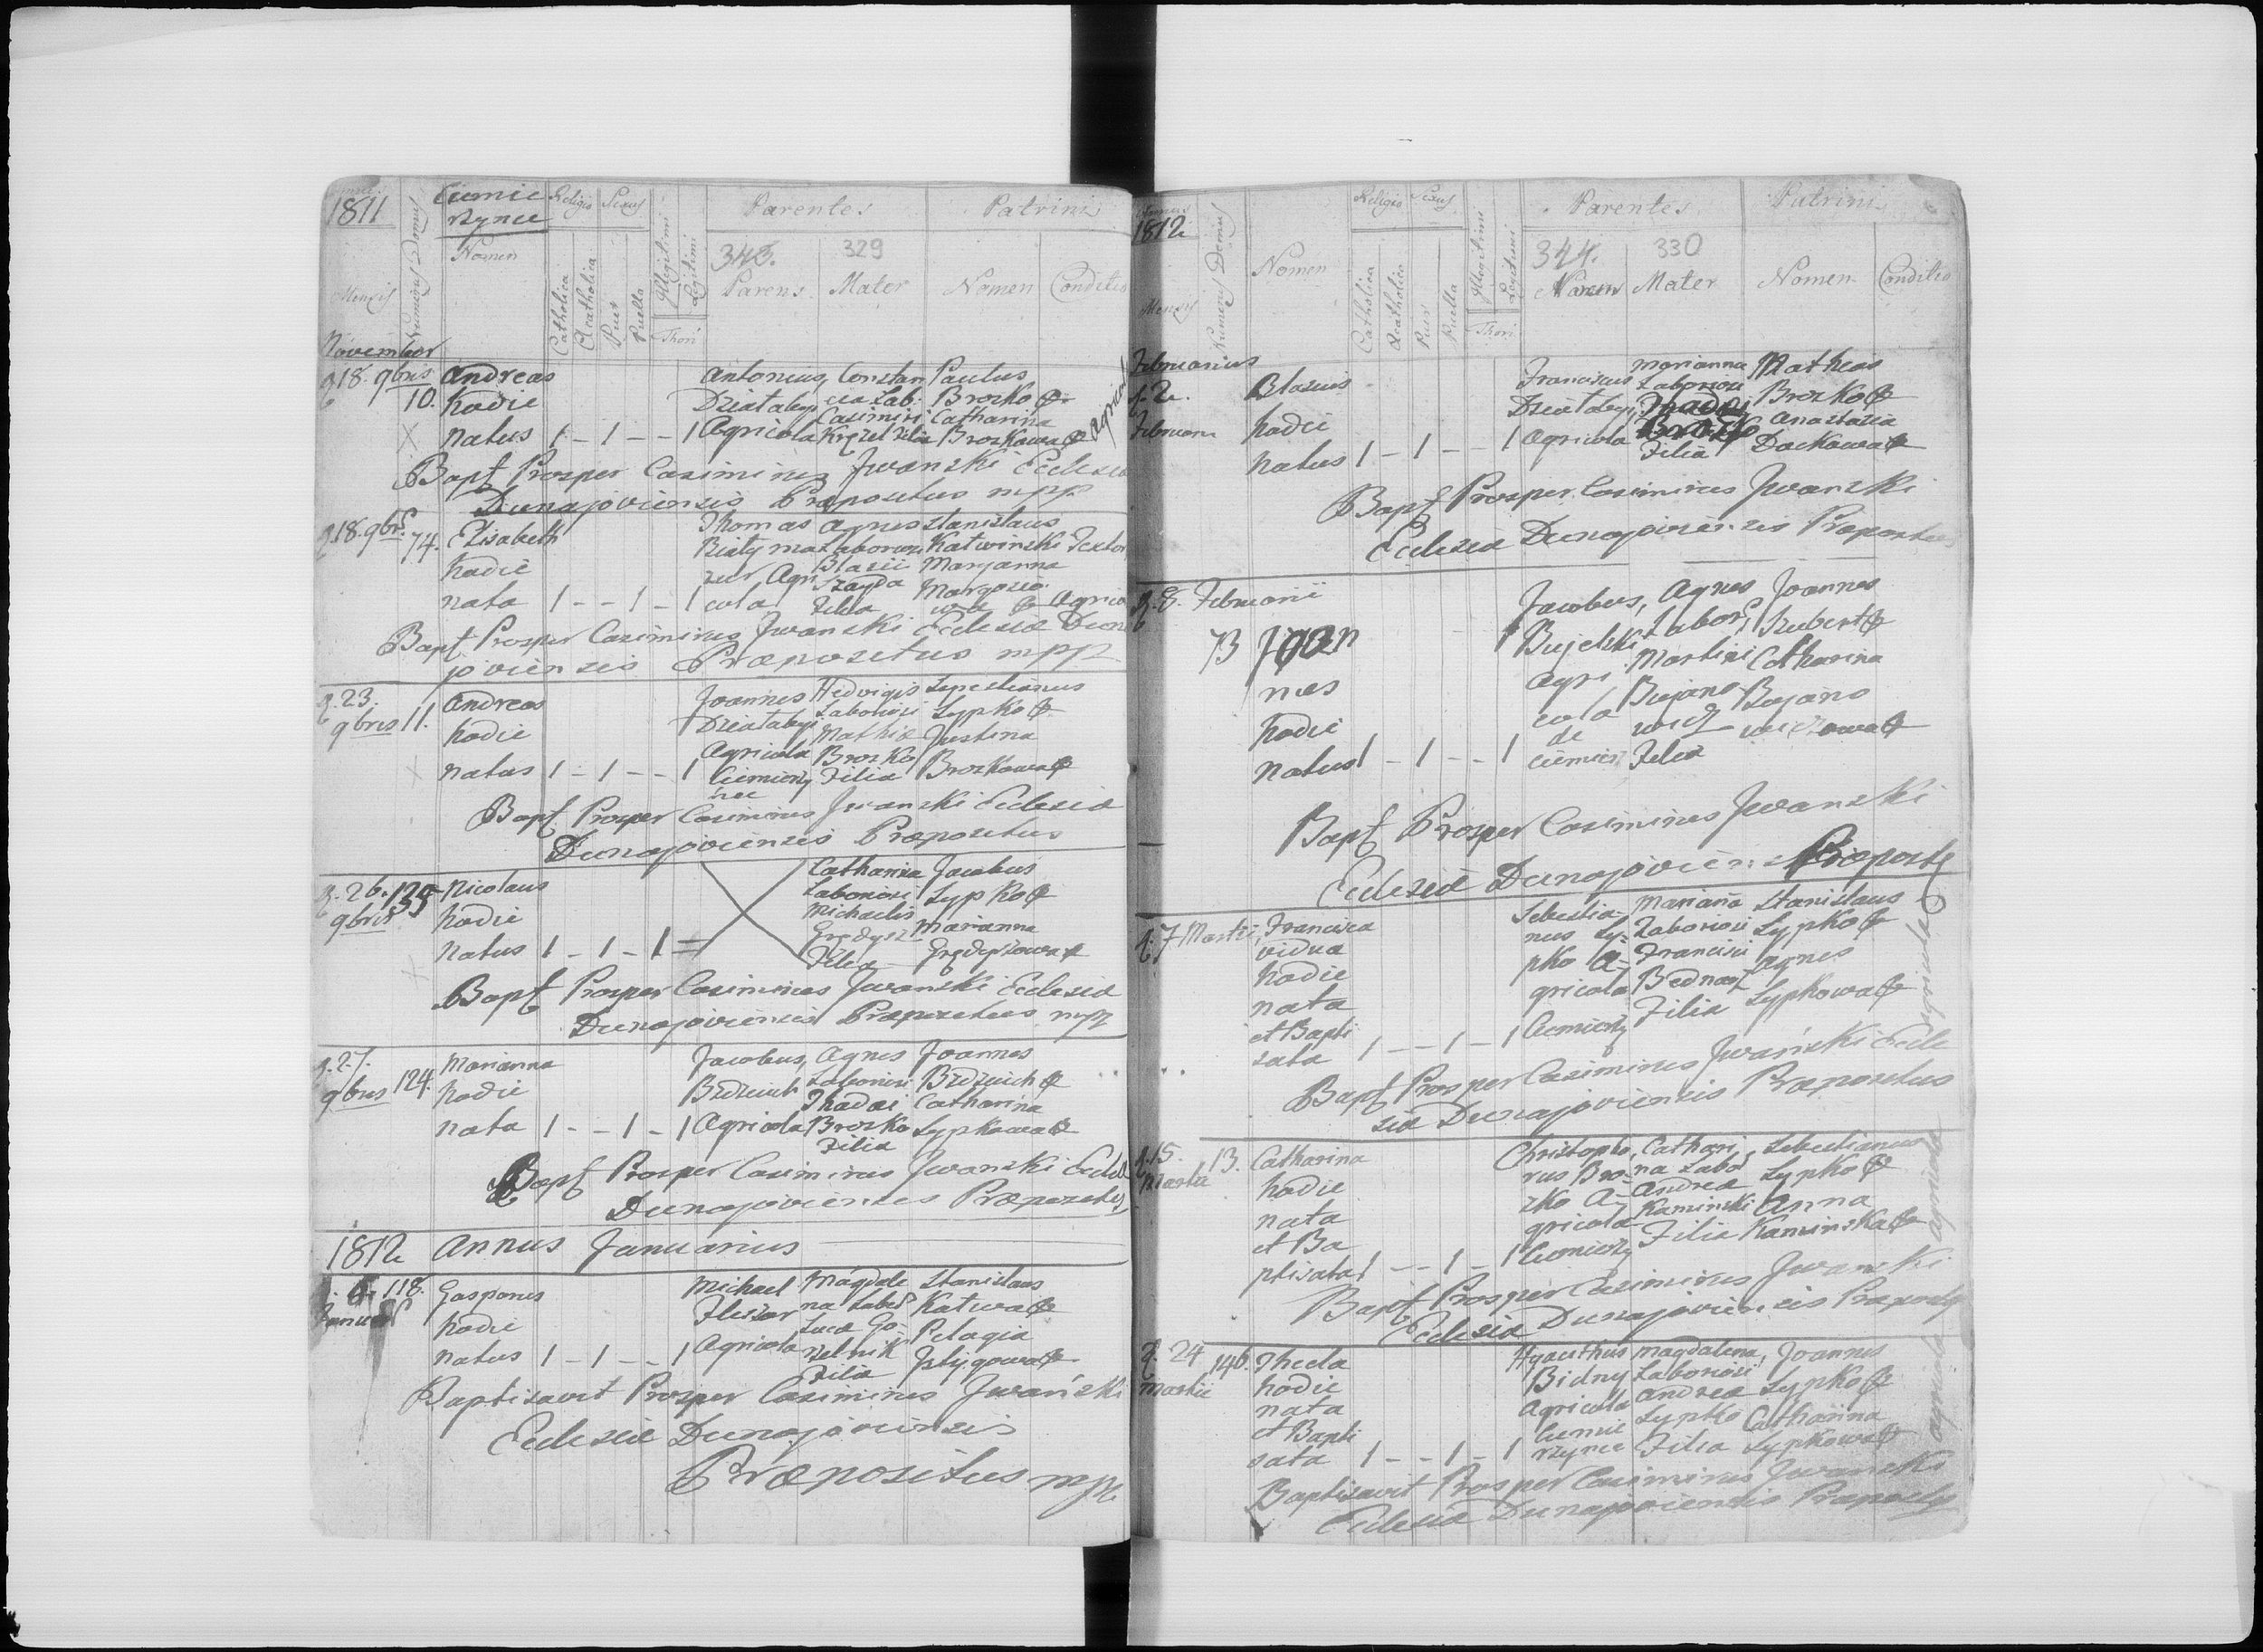 1811
Ciemie
rzynce
Religio Sexus
Parentes
Patrini
Mensis
Numerus Domus
Nomen
Catholica
Acatholica
Puer
Puella
Illegitimi
Legitimi
Thori
343.
329
Parens Mater
Nomen Conditio
November
18. 9bris
10.
Andreas
hodie
natus 1 - 1 - - 1
Antonius
Dziataby
Agricola
Constan
cia Lab.
Casimiri
Filia
Paulus
Brozko
Catharina
Brozkowa
Agricol
Bapt Prosper Casimirus Jwanski Eclesia
Dunajoviensis Prepositus mpp
18. 9br
74.
Elisabeth
hodie
nata 1 - - 1 - 1
Thomas
Agri
cola
Agnes
Laborios
Blasii
Filia
Stanislaus
Katwinski Textor
Maryanna
Agrico
Bapt Prosper Casimirus Jwanski Eclesiæ Duna
joviensis Præpositus mpp
23.
9bris 11.
Andreas
hodie
natus 1 - 1 - - 1
Joannes
Dziatabyi
Agricola
Ciemierzy
nce
Hedvigis
Laboriosi
Mathiæ
Brozko
Filia
Sypko
Justina
Brozkowa
Bapt Prosper Casimirus Jwanski Eclesiæ
Dunajoviensis Præpositus
26. 135
9bris
Nicolaus
hodie
natus 1 - 1 - 1
Catharina
Laboriosi
Michaelis
Filia
Jacobus
Sypko
Marianna
Bapt Prosper Casimirus Jwanski Eclesiæ
Dunajoviensis Præpositus mpp
27.
9bris 124.
Marianna
hodie
nata 1 - - 1 - 1
Jacobus
Agricola
Agnes
Laboriosi
Thadæi
Brozko
Filia
Joannes
Catharina
Sypkowa
Bapt Prosper Casimirus Jwanski Eclesiæ
Dunajoviensis Præpositus
1812 Annus Januarius
118.
Januar
Gasparus
hodie
natus 1 - 1 - - 1
Michael
Agricola
Magdale
na Labo
Lucæ Go-
Filia
Stanislaus
Katwa
Pelagia
Baptisavit Prosper Casimirus Jwański
Eclesiæ Dunajoviensis
Præpositus mpp
1812
Mensis
Numerus Domus
Nomen
Religio Sexus
Catholica
Acatholica
Puer
Puella
Illegitimi
Legitimi
Thori
Parentes
Patrini
344.
330
Mater
Nomen
Conditio
Februarius
2.
Februarii
Blasius
hodie
natus 1 - 1 - - 1
Franciscus
Dziatabyi
Agricola
Marianna
Laboriosi
Filia
Matheas
Brozko
Anastazia
Dackowa
Bapt Prosper Casimirus Jwanski
Eclesiæ Dunajoviensis Præpositus
8. Februarii
73
Joan
nes
hodie
natus 1 - 1 - - 1
Jacobus
Bujelski
Agri
cola
de
Ciemierz
Agnes
Labor
Martini
Bujano
wicz
Filia
Joannes
Kubert
Catharina
Bujano
wiczowa
Bapt Prosper Casimirus Jwanski
Eclesiæ Dunajoviens Præposit
7 Martii
Francisca
vidua
hodie
nata
et Bapti
zata 1 - - 1 - 1
Sebestia
nus Sy-
pko A-
gricola
Ciemierzy
Mariana
Laboriosi
Francisci
Bednarz
Filia
Stanislaus
Sypko
Agnes
Sypkowa
Agricola
Bapt Prosper Casimirus Jwański Ecle
siæ Dunajoviensis Præpositus
15.
Martii
13.
Catharina
hodie
nata
et Ba
ptisata 1 - - 1 - 1
Christopho
rus Bro-
zko A-
gricola
Ciemierzy
Cathari
na Labo
Andreæ
Kaminski
Filia
Sebestianus
Sypko
Anna
Kaminska
Agricola
Bapt Prosper Casimirus Jwanski
Eclesiæ Dunajoviensis Præposits
24
Martii
146.
Thecla
hodie
nata
et Bapti
sata 1 - - 1 - 1
Hyacinthus
Bidny
Agricola
Ciemie
rzynce
Magdalena
Laboriosi
Andreæ
Sypko
Filia
Joannes
Sypko
Catharina
Sypkowa
Agricola
Baptisavit Prosper Casimirus Jwanski
Eclesiæ Dunajoviensis Præposits